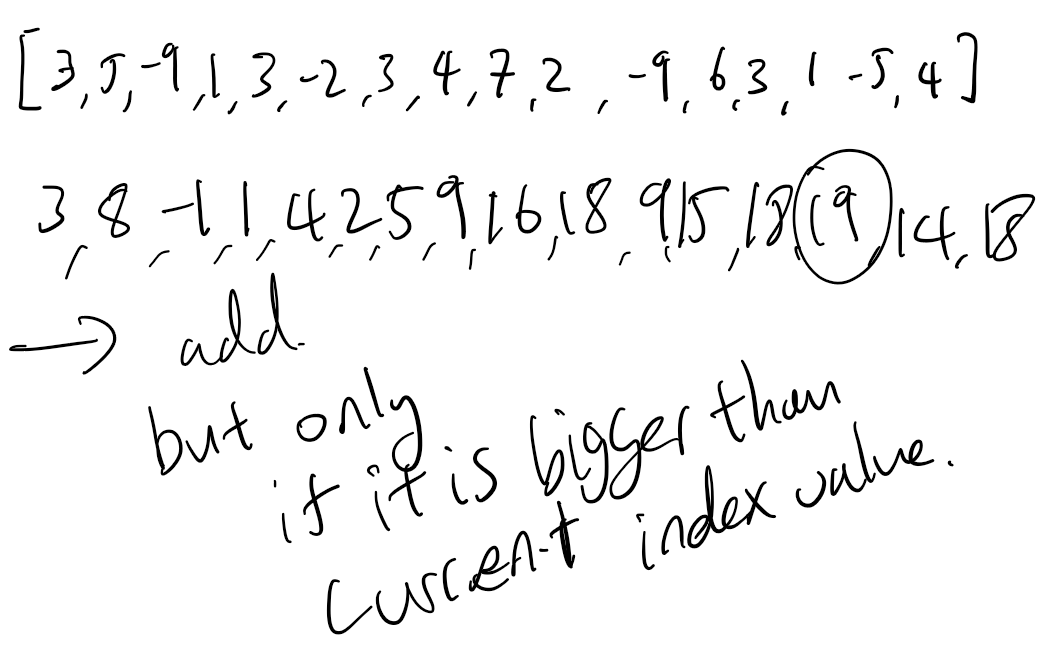 [3,5,-9,1,3,-2,3,4,7,2,-9,6,3,1 -5,4]
3,8,-1,1,4,2,5,9,16,18,9,15,18,19,14,18
→ add.
but only
if it is bigger than
current index value.